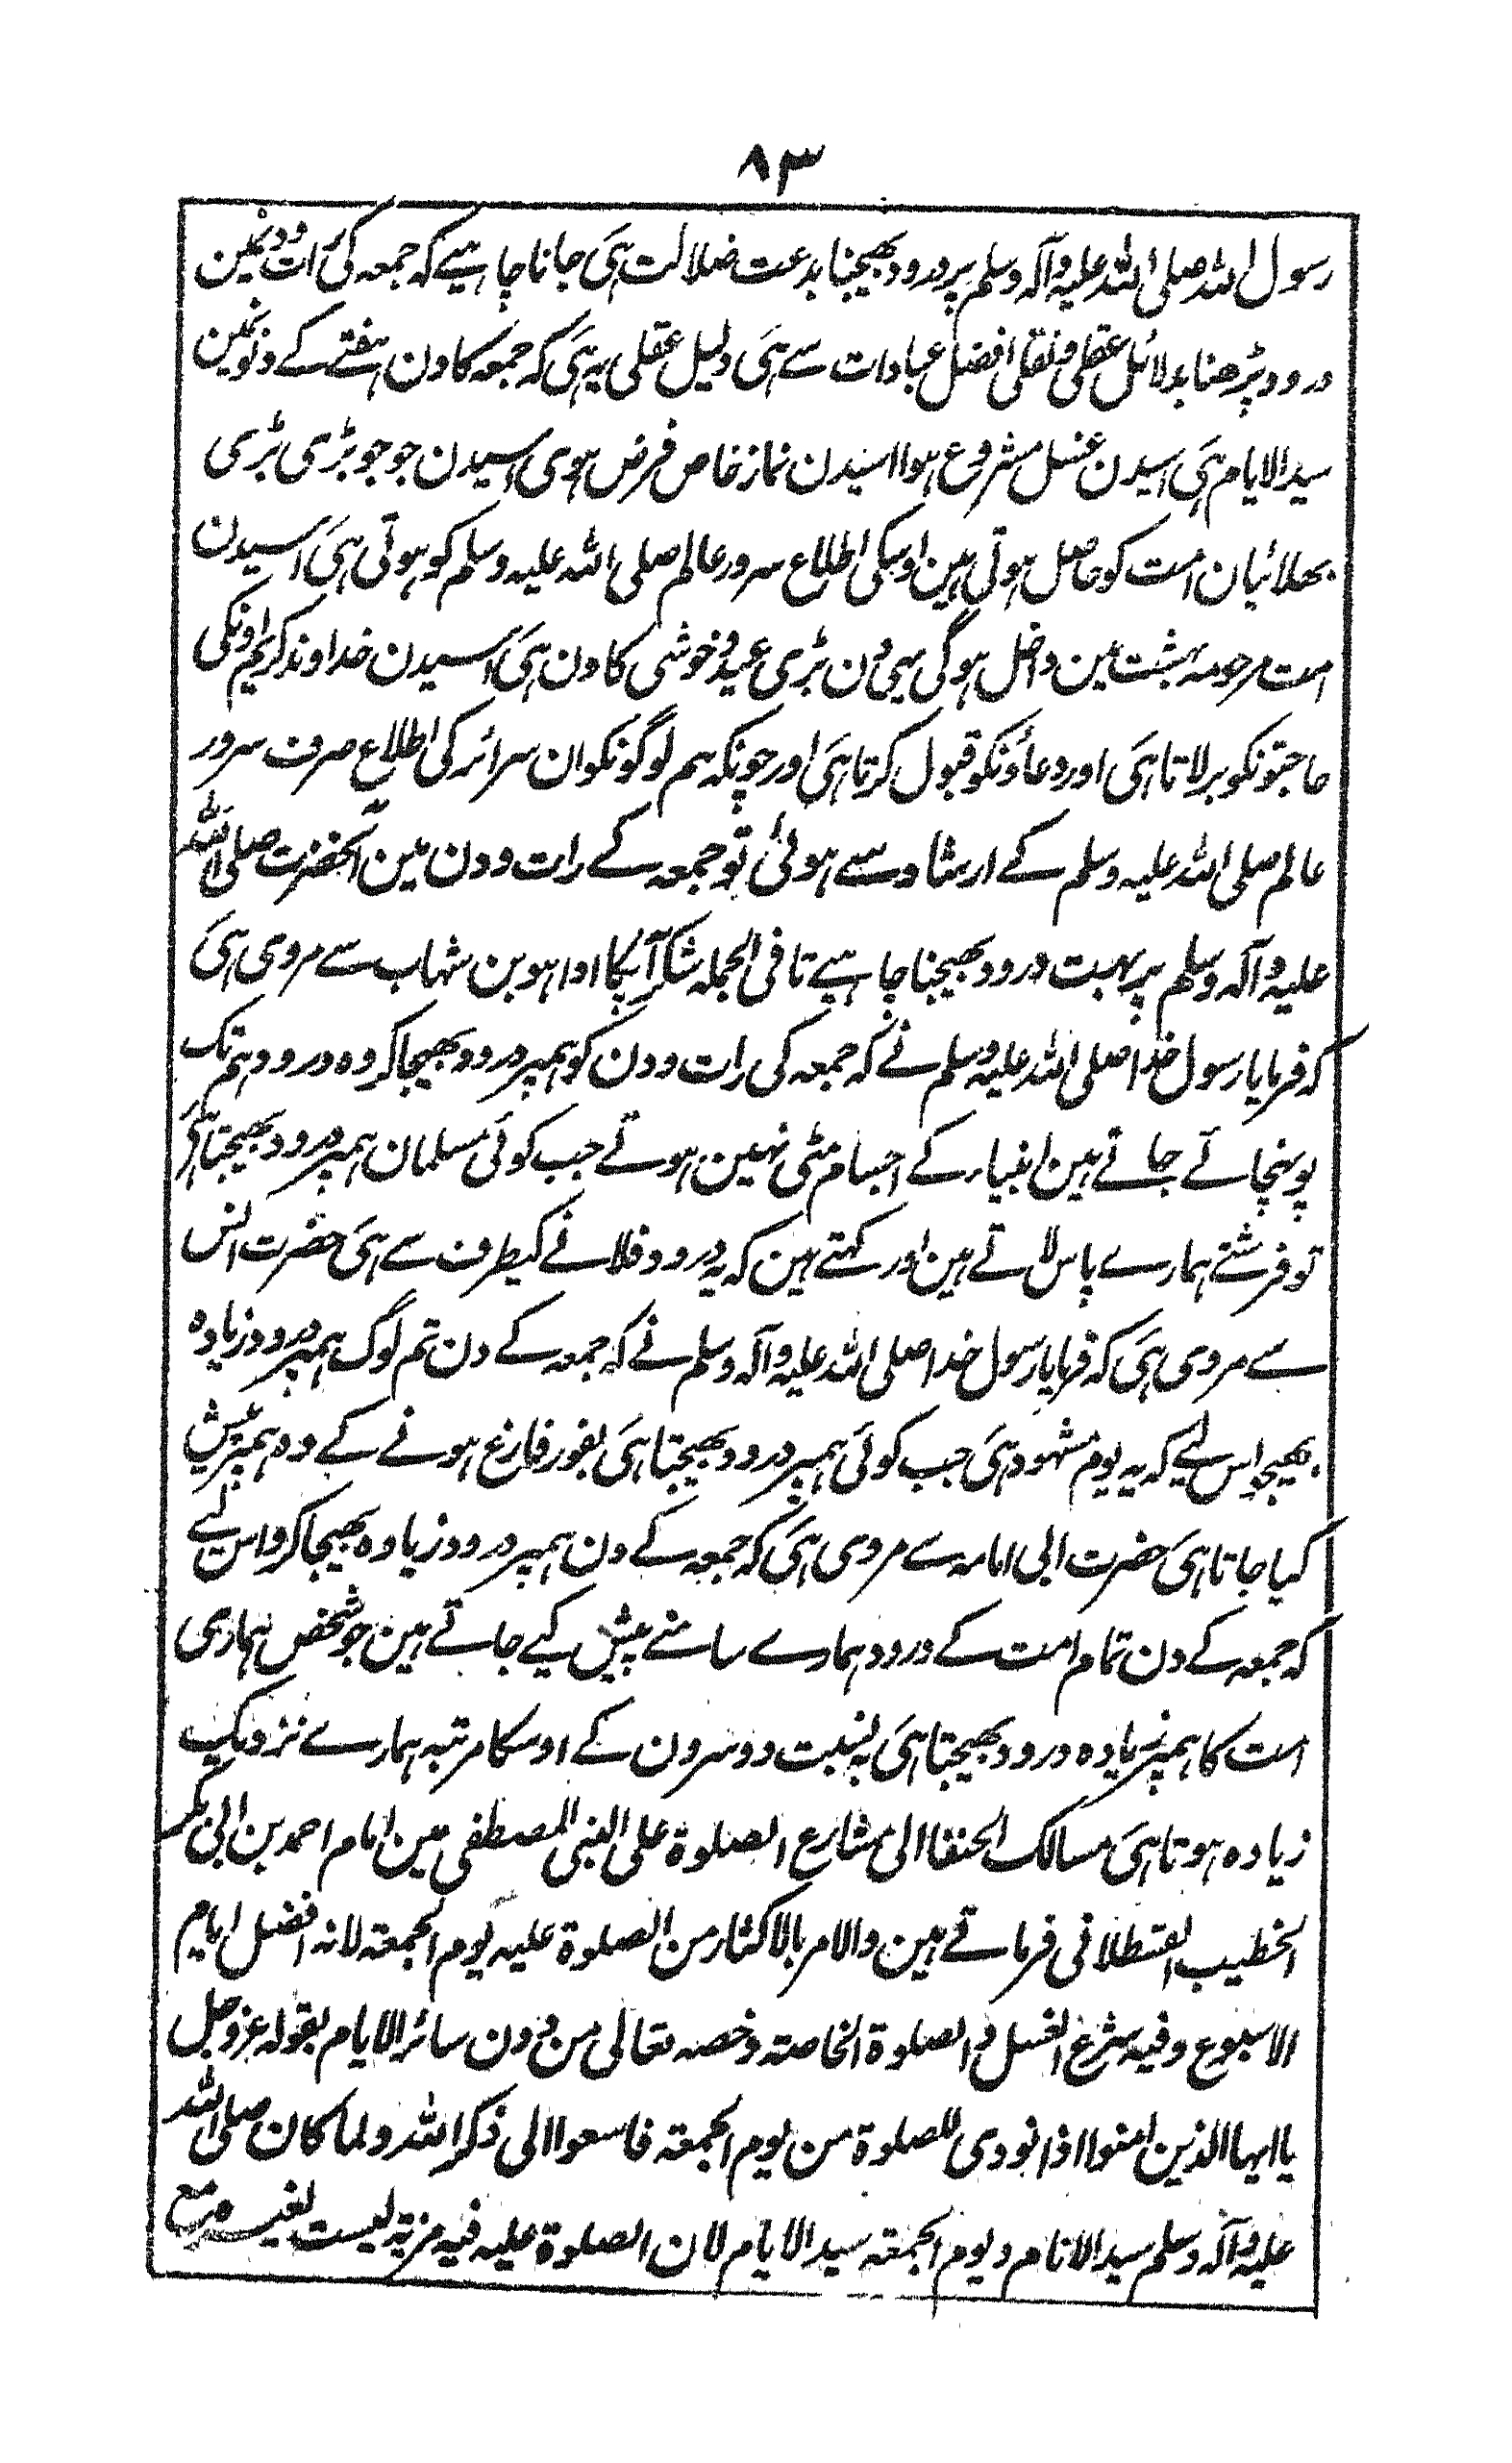 ۸۳
رسول اللہ صلی اللہ علیہ وآلہ وسلم پر درود بھیجنا بدعت ضلالت ہی جاننا چاہیے کہ جمعہ کی رات ودنمین
درود پڑھنا بدلائل عقلی ونقلی افضل عبادات سے ہی دلیل عقلی یہ ہی کہ جمعہ کا دن ہفتے کے دنونمین
سید الایام ہی اسیدن غسل مشروع ہوا اسیدن نماز خاص فرض ہوی اسیدن جو جو بڑی بڑی
بھلائیان امت کو حاصل ہوتی ہین اوسکی اطلاع سرور عالم صلی اللہ علیہ وسلم کو ہوتی ہی اسیدن
امت مرحومہ بہشت مین داخل ہوگی یہی دن بڑی عید وخوشی کا دن ہی اسیدن خداوند کریم اونکی
حاجتونکو برلاتا ہی اور دعاؤنکو قبول کرتا ہی اور چونکہ ہم لوگونکو ان سرائر کی اطلاع صرف سرور
عالم صلی اللہ علیہ وسلم کے ارشاد سے ہوئی تو جمعہ کے رات ودن مین آنحضرت صلی اللہ
علیہ وآلہ وسلم پر بہت درود بھیجنا چاہیے تا فی الجملہ شکر آپکا ادا ہو بن شہاب سے مروی ہی
کہ فرمایا رسول خدا صلی اللہ علیہ وسلم نے کہ جمعہ کی رات ودن کو ہمپر درود بھیجا کرو وہ درود ہم تک
پونہچائے جاتے ہین انبیاء کے اجسام مٹی نہین ہوتے جب کوئی مسلمان ہمپر درود بھیجتا ہی
تو فرشتے ہمارے پاس لاتے ہین اور کہتے ہین کہ یہ درود فلانے کیطرف سے ہی حضرت انس
سے مروی ہی کہ فرمایا رسول خدا صلی اللہ علیہ وآلہ وسلم نے کہ جمعہ کے دن تم لوگ ہمپر درود زیادہ
بھیجو اس لیے کہ یہ یوم مشہود ہی جب کوئی ہمپر درود بھیجتا ہی بفور فارغ ہونے کے وہ ہمپر پیش
کیا جاتا ہی حضرت ابی امامہ سے مروی ہی کہ جمعہ کے دن ہمپر درود زیادہ بھیجا کرو اس لیے
کہ جمعہ کے دن تمام امت کے درود ہمارے سامنے پیش کیے جاتے ہین جو شخص ہماری
امت کا ہمپر زیادہ درود بھیجتا ہی بہ نسبت دوسرون کے اوسکا مرتبہ ہمارے نزدیک
زیادہ ہوتا ہی مسالک الحنفا الی مشارع الصلوۃ علی النبی المصطفی مین امام احمد بن ابی بکر
الخطیب القسطلانی فرماتے ہین والامر بالاکثار من الصلوۃ علیہ یوم الجمعۃ لانہ افضل ایام
الاسبوع وفیہ شرع الغسل والصلوۃ الخاصۃ وخصہ تعالی من دون سائر الایام بقولہ عز وجل
یا ایہا الذین امنوا اذا نودی للصلوۃ من یوم الجمعۃ فاسعوا الی ذکر اللہ ولما کان صلی اللہ
علیہ وآلہ وسلم سید الانام ویوم الجمعۃ سید الایام لان الصلوۃ علیہ فیہ مزیۃ لیست لغیرہ مع